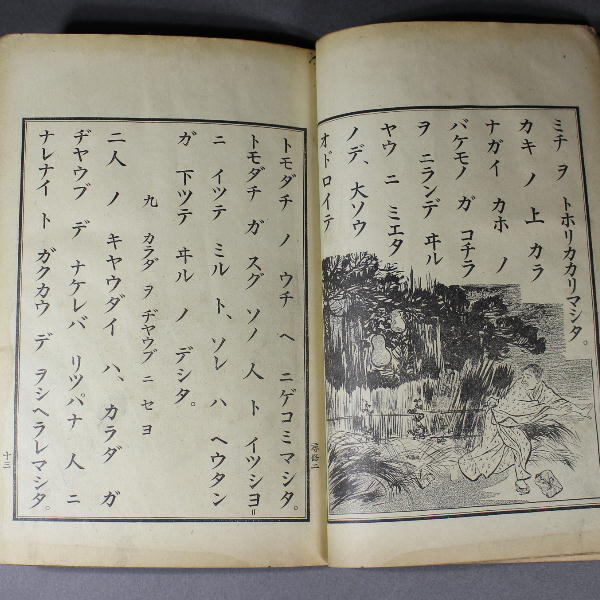 ミチ ヲ トホリカカリマシタ。
カキ ノ 上 カラ
ナガイ カホ ノ
バケモノ ガ コチラ
ヲ ニランデ ヰル
ヤウ ニ ミエタ
ノデ、大ソウ
オドロイテ
トモダチ ノ ウチ ヘ ニゲコミマシタ。
トモダチ ガ スグ ソノ 人 ト イツシヨ=
ニ イツテ ミル ト、ソレ ハ ヘウタン
ガ 下ツテ ヰル ノ デシタ。
九 カラダ ヲ ヂヤウブ ニ セヨ
二人 ノ キヤウダイ ハ、カラダ ガ
ヂヤウブ デ ナケレバ リツパナ 人 ニ
ナレナイ ト ガクカウ デ ヲシヘラレマシタ。
十三